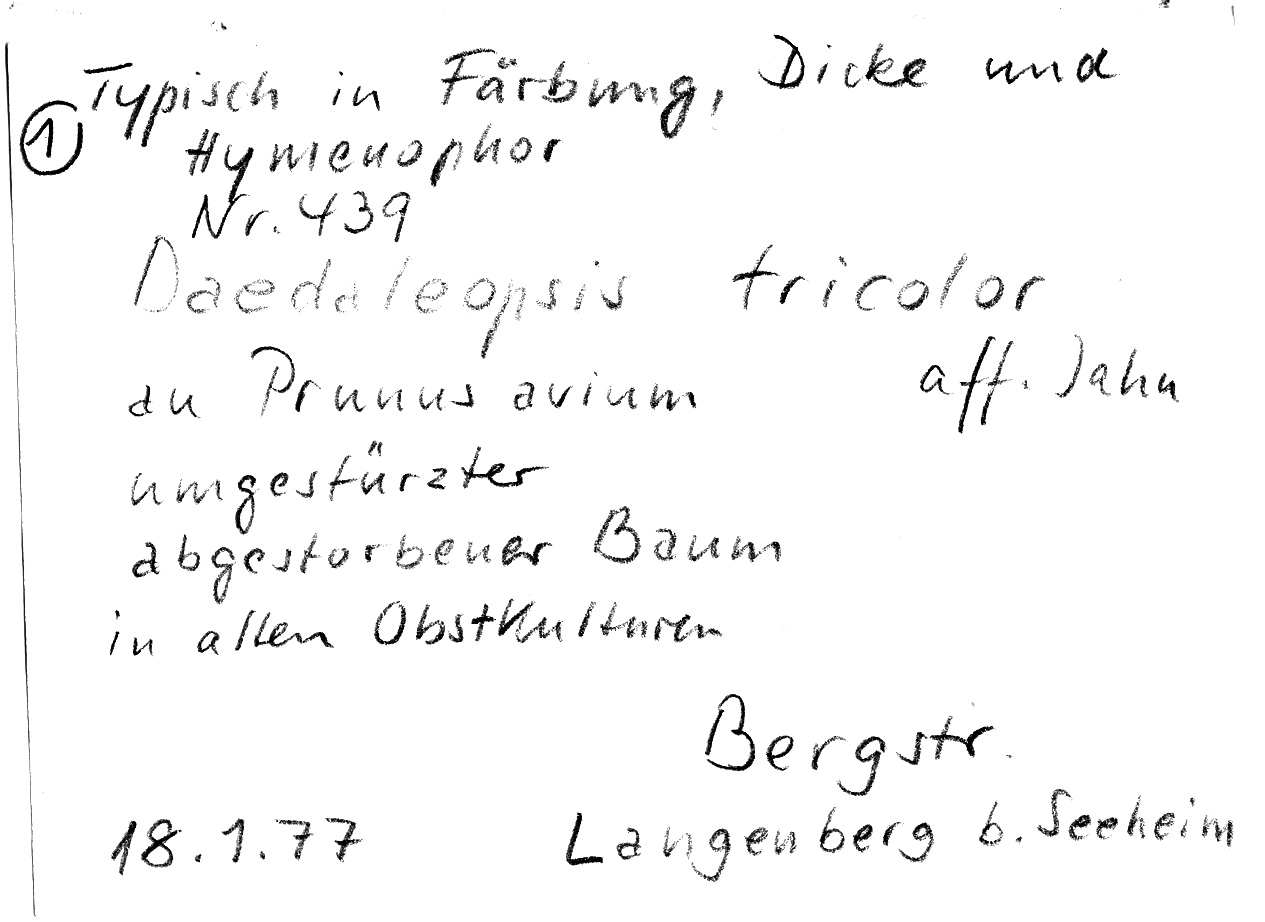 Typisch in Färbung, Dicke und
① Hymenophor
Nr. 439
Daedaleopsis tricolor
an Prunus avium aff. Jahn
umgestürzter
abgestorbener Baum
in alten Obstkulturen
Bergstr.
18.1.77 Langenberg b. Seeheim